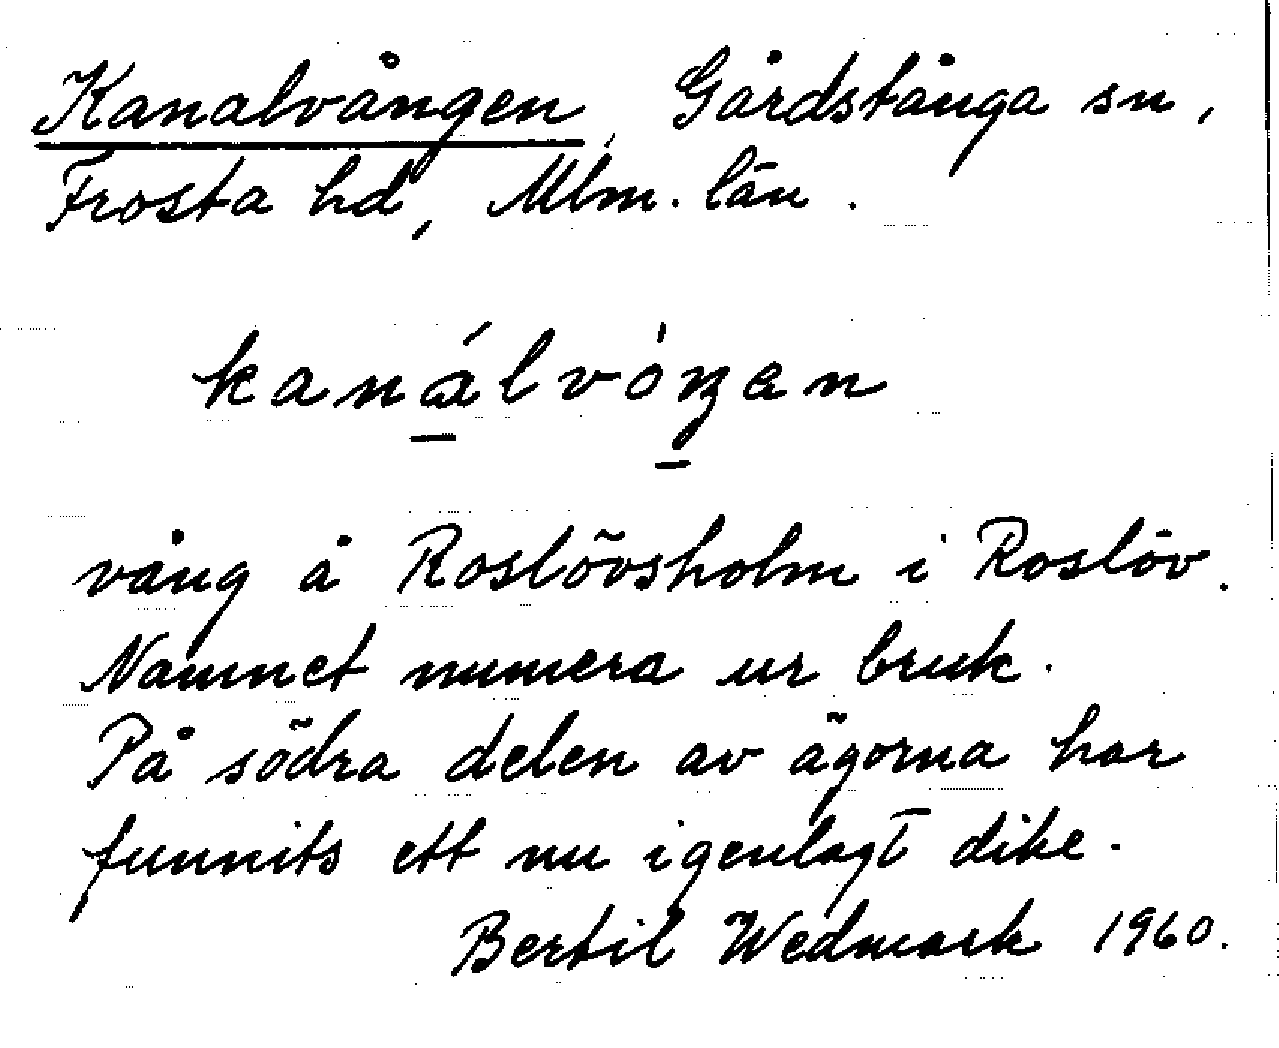 Kanalvången, Gårdstånga sn,
Frosta hd, Mlm. län.
kanálvóŋen
vång å Roslövsholm i Roslöv.
Namnet numera ur bruk.
På södra delen av ägorna har
funnits ett nu igenlagt dike.
Bertil Wedmark 1960.